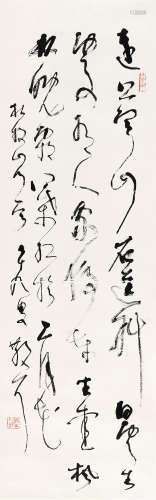 遠上寒山石逕斜白雲生
處有人家停車坐愛楓
林晚霜葉紅於二月花
杜牧山行 散耳